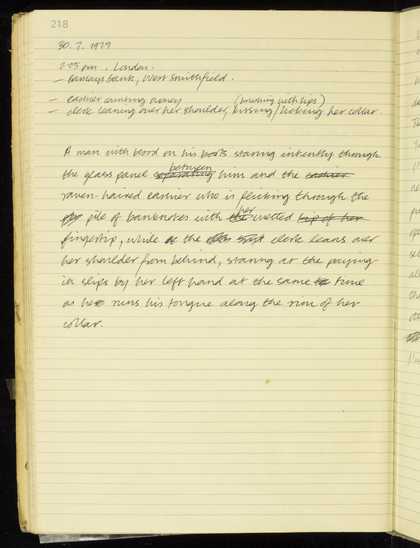 218
30. 7. 1979
2.55 pm. London.
– Barclays Bank, West Smithfield.
– cashier counting money (brushing with lips)
– clerk leaning over her shoulder, kissing/licking her collar.
A man with blood on his boots staring intently through
the glass panel separating between him and the cashier
raven-haired cashier who is flicking through the
pile of banknotes with the her wetted tip of her
fingertip, while the clerk leans over
her shoulder from behind, staring at the paying-
in slips by her left hand at the same time
as he runs his tongue along the rim of her
collar.